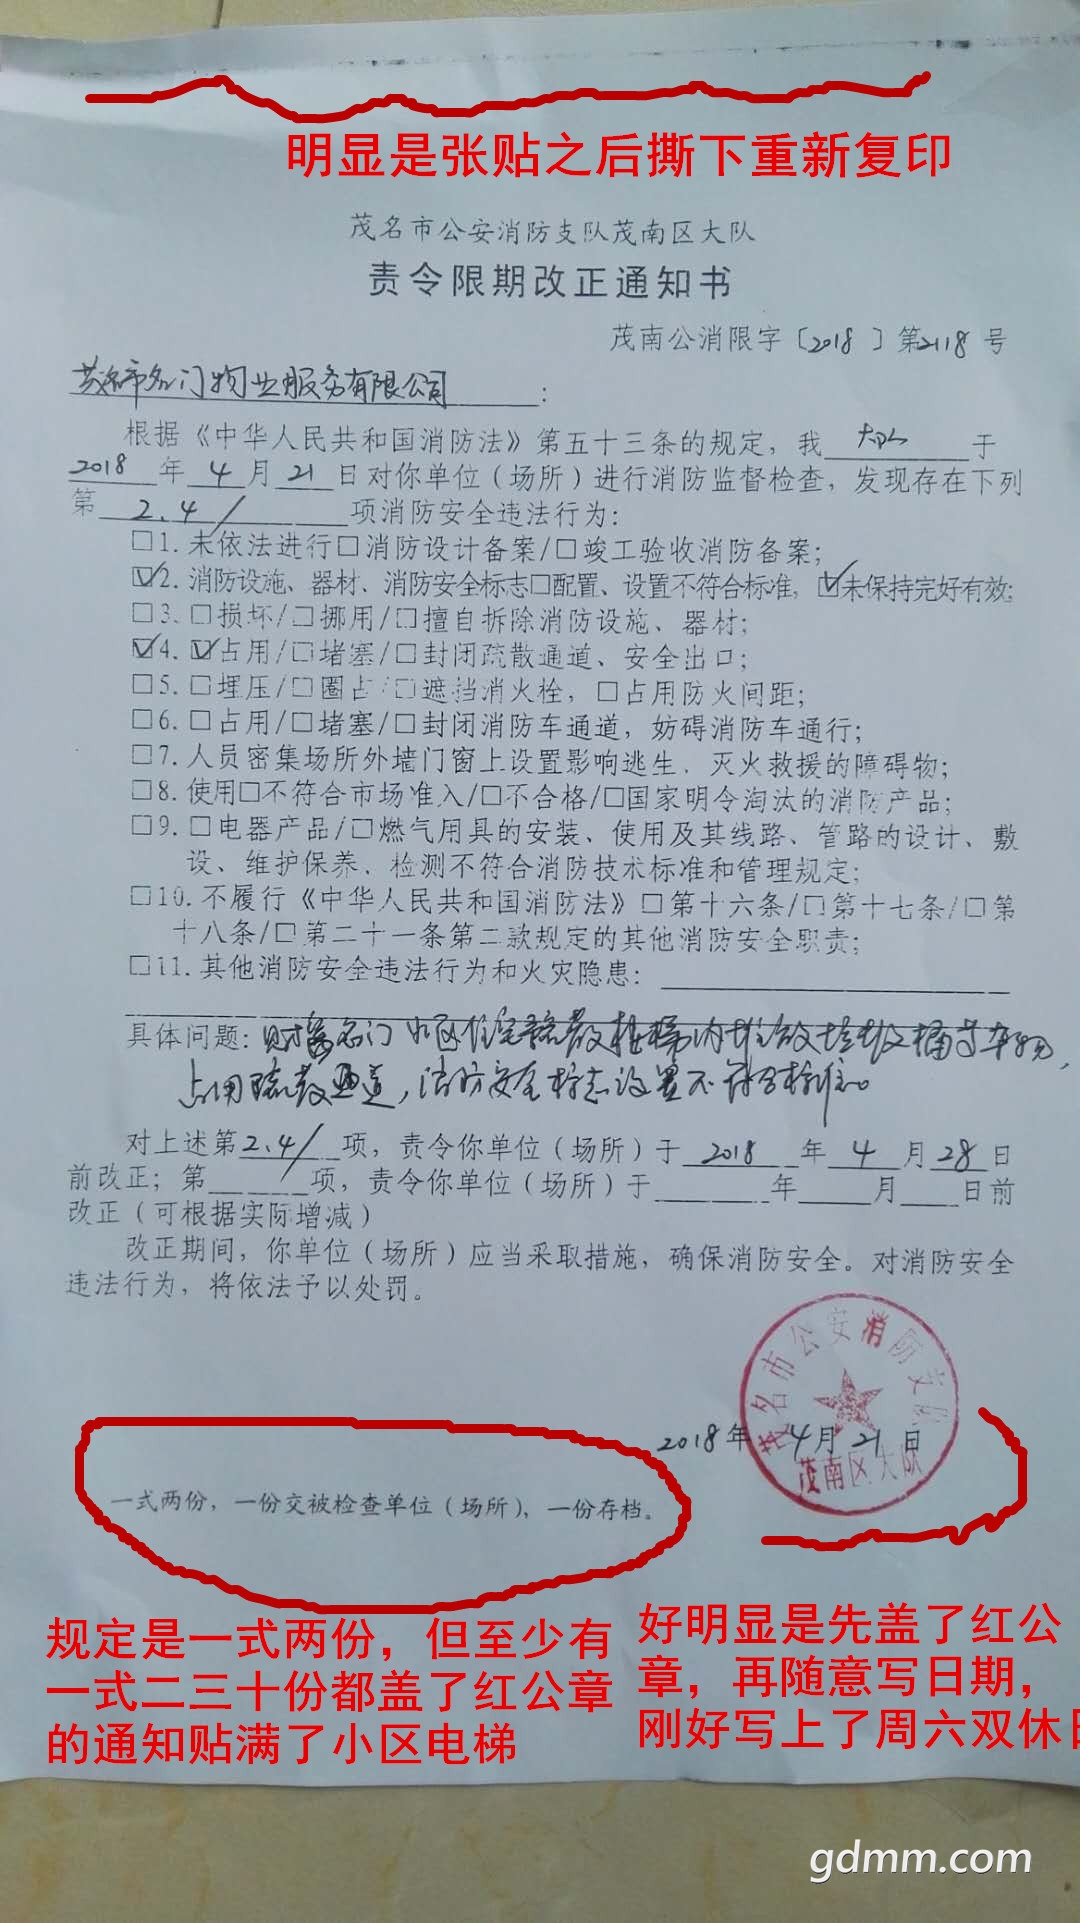 明显是张贴之后撕下重新复印
茂名市公安消防支队茂南区大队
责令限期改正通知书
茂南公消限字〔2018〕第2118号
茂名市名门物业服务有限公司：
根据《中华人民共和国消防法》第五十三条的规定，我大队于
2018年4月21日对你单位（场所）进行消防监督检查，发现存在下列
第2.4/项消防安全违法行为：
□1.未依法进行□消防设计备案/□竣工验收消防备案；
☑2.消防设施、器材、消防安全标志□配置、设置不符合标准，☑未保持完好有效；
□3.□损坏/□挪用/□擅自拆除消防设施、器材；
☑4.☑占用/□堵塞/□封闭疏散通道、安全出口；
□5.□埋压/□圈占/□遮挡消火栓，□占用防火间距；
□6.□占用/□堵塞/□封闭消防车通道，妨碍消防车通行；
□7.人员密集场所外墙门窗上设置影响逃生、灭火救援的障碍物；
□8.使用□不符合市场准入/□不合格/□国家明令淘汰的消防产品；
□9.□电器产品/□燃气用具的安装、使用及其线路、管路的设计、敷
设、维护保养、检测不符合消防技术标准和管理规定；
□10.不履行《中华人民共和国消防法》□第十六条/□第十七条/□第
十八条/□第二十一条第二款规定的其他消防安全职责；
□11.其他消防安全违法行为和火灾隐患：
具体问题：财富名门小区住宅疏散楼梯内堆放垃圾桶等杂物，
占用疏散通道，消防安全标志设置不符合标准。
对上述第2.4/项，责令你单位（场所）于2018年4月28日
前改正；第项，责令你单位（场所）于年月日前
改正（可根据实际增减）
改正期间，你单位（场所）应当采取措施，确保消防安全。对消防安全
违法行为，将依法予以处罚。
茂名市公安消防支队
茂南区大队
2018年4月21日
一式两份，一份交被检查单位（场所），一份存档。
规定是一式两份，但至少有
一式二三十份都盖了红公章
的通知贴满了小区电梯
好明显是先盖了红公
章，再随意写日期，
刚好写上了周六双休日
gdmm.com